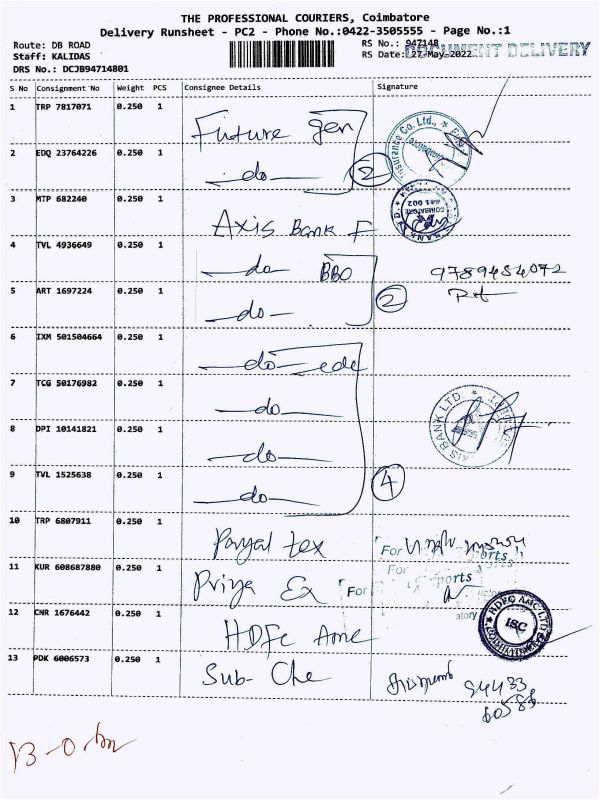 THE PROFESSIONAL COURIERS, Coimbatore
Delivery Runsheet - PC2 - Phone No.:0422-3505555 - Page No.:1
Route: DB ROAD
RS No.: 947148
Staff: KALIDAS
RS Date: 27-May-2022
DOCUMENT DELIVERY
DRS No.: DCJB94714801
S No Consignment No Weight PCS Consignee Details Signature
1 TRP 7817071 0.250 1 Future gen
2 EDQ 23764226 0.250 1 -do- 2
3 MTP 682240 0.250 1 Axis Bank F
4 TVL 4936649 0.250 1 -do BBO 9789454072
5 ART 1697224 0.250 1 -do- 2
6 IXM 501504664 0.250 1 -do-
7 TCG 50176982 0.250 1 -do-
8 DPI 10141821 0.250 1 -do-
9 TVL 1525638 0.250 1 -do- 4
10 TRP 6807911 0.250 1 Payal tex For
11 KUR 608687880 0.250 1 Priya Ex For
12 CNR 1676442 0.250 1 HDFC Amc
HDFC AMC LTD
ISC
13 PDK 6006573 0.250 1 Sub- Che 94433
60586